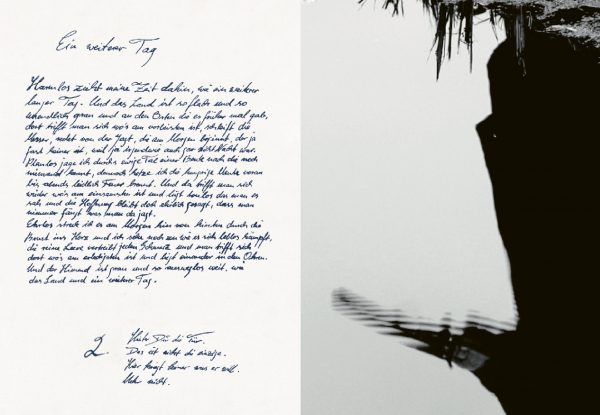 Ein weiterer Tag
Harmlos zieht meine Zeit dahin, wie ein weiterer
langer Tag. Und das Land ist so flach und so
unendlich grau und an den Orten die es früher mal gab,
dort trifft man sich wo's am verlorensten ist, schleift die
Messer, redet von der Jagd, die am Morgen beginnt, der ja
fast keiner ist, weil ja irgendwie auch gar Nacht war.
Planlos jage ich durchs ewige Tal einer Beute nach die noch
niemand kennt, dennoch hetze ich die hungrige Meute voran
bis abends kein Feuer brennt. Und da trifft man sich
wieder wo's am einsamsten ist und lügt von man es
sah und die Hoffnung bleibt doch ehrlich gesagt, dass man
nimmer fängt was man da jagt.
Ehrlos streck ich es am Morgen hin von hinten durch die
Brust ins Herz und ich sehe noch zu wie es sich leblos kämpft,
die seine Leere verteilt jeden Schmerz und man trifft sich
dort wo's am ist und lügt einander in den Ohren.
Und der Himmel ist grau und so ausweglos weit, wie
das Land und ein weiterer Tag.
2. Siehst Du die Tür.
Das ist nicht die einzige.
Hier kriegt keiner was er will.
Mehr nicht.